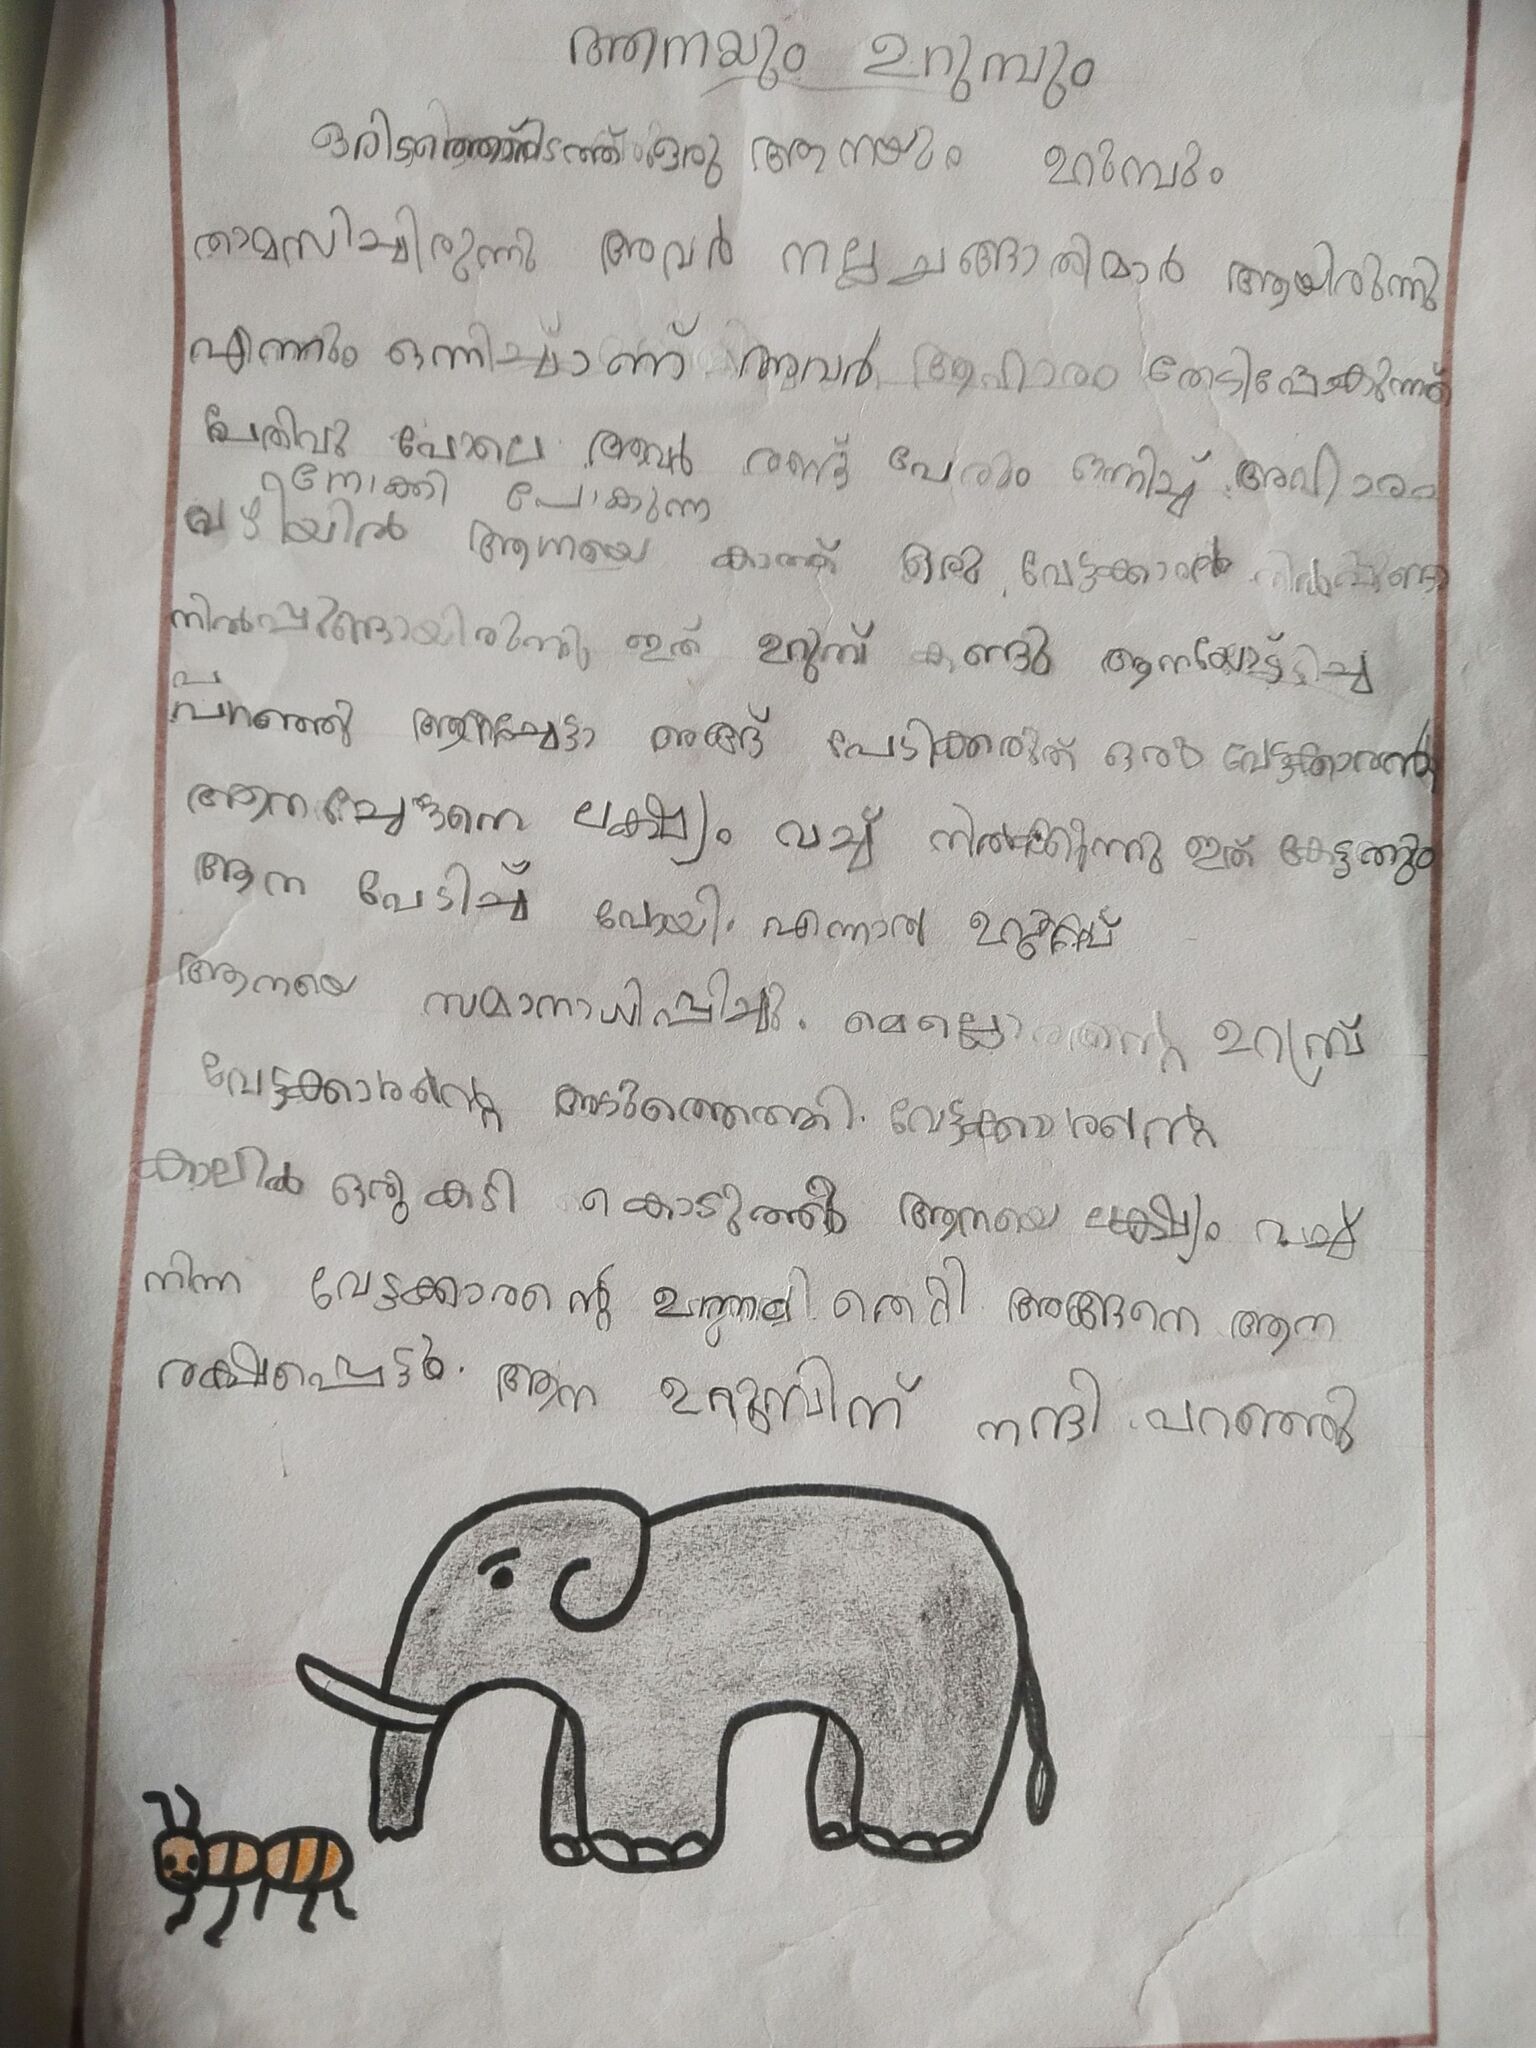 ആനയും ഉറുമ്പും
ഒരിടത്തൊരിടത്ത് ഒരു ആനയും ഉറുമ്പും
താമസിച്ചിരുന്നു അവർ നല്ല ചങ്ങാതിമാർ ആയിരുന്നു
എന്നും ഒന്നിച്ചാണ് അവർ ആഹാരം തേടിപ്പോകുന്നത്
പതിവു പോലെ അവർ രണ്ട് പേരും ഒന്നിച്ച്
നോക്കി പോകുന്ന
വഴിയിൽ ആനയെ കാത്ത് ഒരു വേട്ടക്കാരൻ
നിൽപ്പുണ്ടായിരുന്നു ഇത് ഉറുമ്പ് കണ്ടു
പറഞ്ഞു ആനച്ചേട്ടാ പേടിക്കരുത് ഒരു വേട്ടക്കാരൻ
ആനച്ചേട്ടനെ ലക്ഷ്യം വച്ച് നിൽക്കുന്നു ഇത് കേട്ടതും
ആന പേടിച്ച് പോയി. എന്നാൽ ഉറുമ്പ്
ആനയെ സമാനാധിപ്പിച്ചു. ഉറുമ്പ്
വേട്ടക്കാരന്റെ അടുത്തെത്തി. വേട്ടക്കാരന്റെ
കാലിൽ ഒരു കടി കൊടുത്തു ആനയെ ലക്ഷ്യം വച്ച്
നിന്ന വേട്ടക്കാരന്റെ ഉന്നം തെറ്റി അങ്ങനെ ആന
രക്ഷപ്പെട്ടു. ആന ഉറുമ്പിന് നന്ദി പറഞ്ഞു